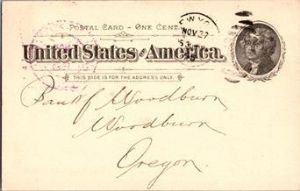 POSTAL CARD - ONE CENT.
United States of America.
THIS SIDE IS FOR THE ADDRESS ONLY.
NOV 27
Bank of Woodburn
Woodburn
Oregon.